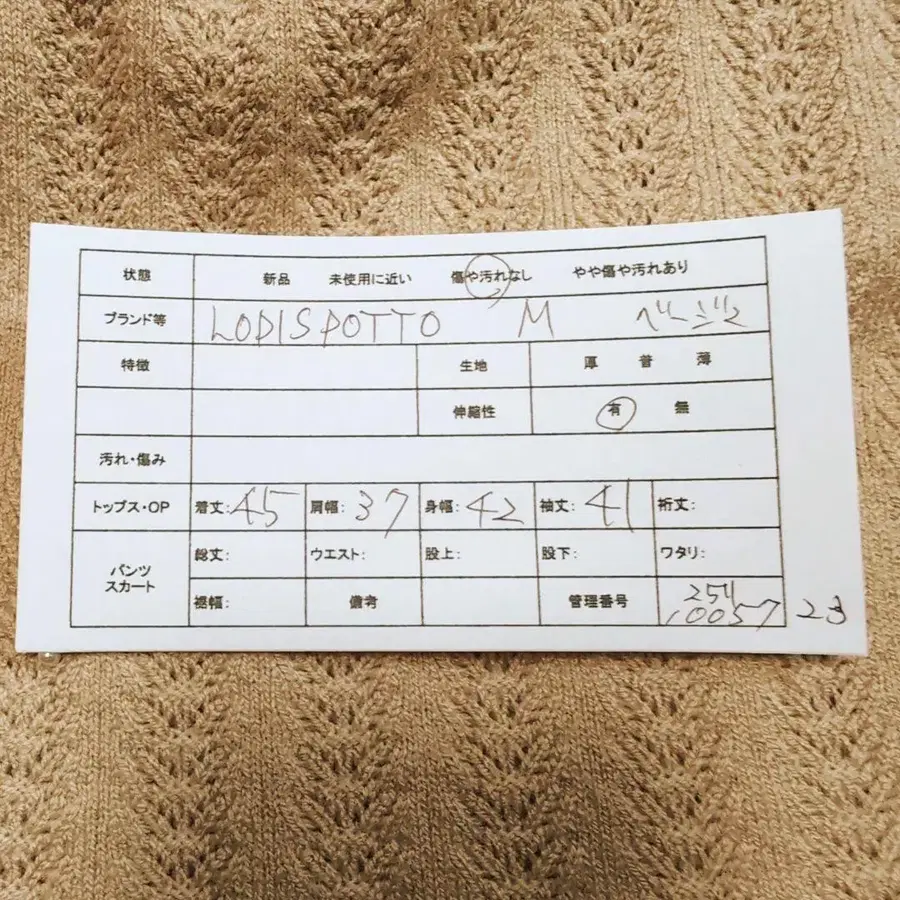 状態 新品 未使用に近い 傷や汚れなし やや傷や汚れあり
ブランド等 LODISPOTTO M ベージュ
特徴 生地 厚 普 薄
伸縮性 有 無
汚れ・傷み
トップス・OP 着丈:45 肩幅:37 身幅:42 袖丈:41 裄丈:
パンツ スカート 総丈: ウエスト: 股上: 股下: ワタリ:
裾幅: 備考 管理番号 254
10057 23